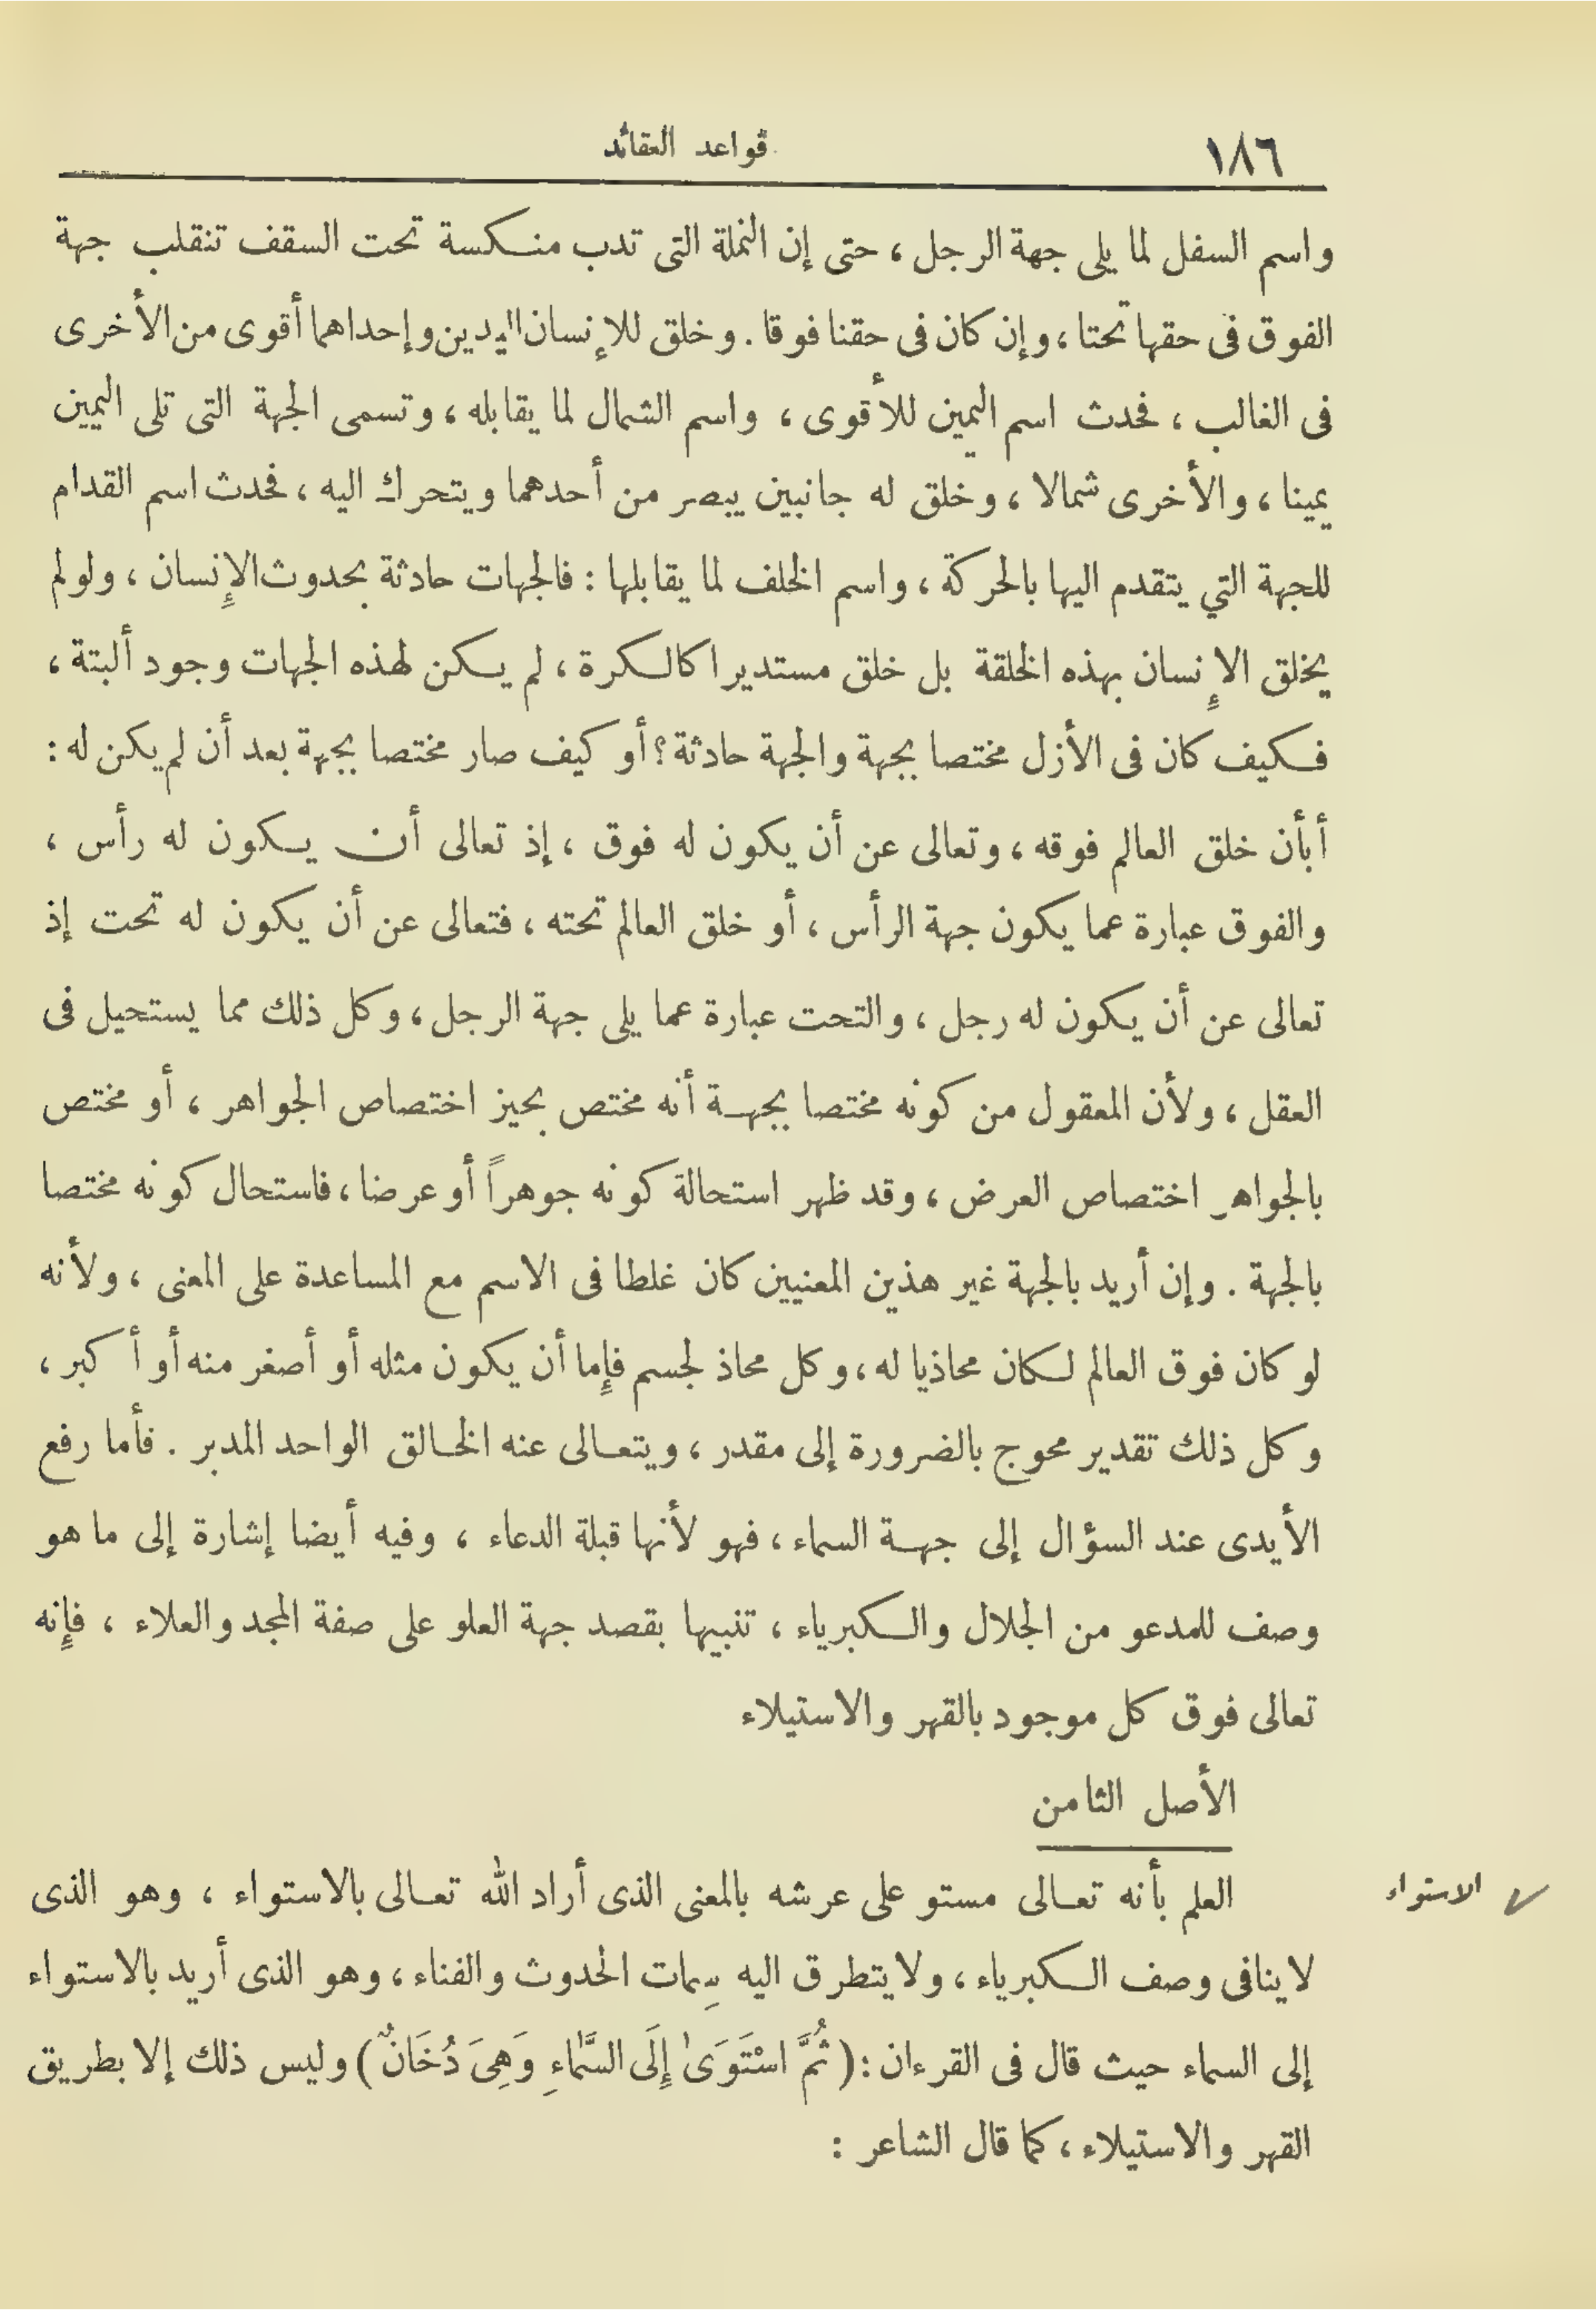 ١٨٦
قواعد العقائد
واسم السفل لما يلى جهة الرجل ، حتى إن النملة التى تدب منكسة تحت السقف تنقلب جهة
الفوق فى حقها تحتا ، وإن كان فى حقنا فوقا . وخلق للإنسان اليدين وإحداهما أقوى من الأخرى
فى الغالب ، فحدث اسم اليمين للأقوى ، واسم الشمال لما يقابله ، وتسمى الجهة التى تلى اليمين
يمينا ، والأخرى شمالا ، وخلق له جانبين يبصر من أحدهما ويتحرك اليه ، فحدث اسم القدام
للجهة التي يتقدم اليها بالحركة ، واسم الخلف لما يقابلها : فالجهات حادثة بحدوث الإنسان ، ولو لم
يخلق الإنسان بهذه الخلقة بل خلق مستديرا كالكرة ، لم يكن لهذه الجهات وجود ألبتة ،
فكيف كان فى الأزل مختصا بجهة والجهة حادثة ؟ أو كيف صار مختصا بجهة بعد أن لم يكن له :
أبأن خلق العالم فوقه ، وتعالى عن أن يكون له فوق ، إذ تعالى أن يكون له رأس ،
والفوق عبارة عما يكون جهة الرأس ، أو خلق العالم تحته ، فتعالى عن أن يكون له تحت إذ
تعالى عن أن يكون له رجل ، والتحت عبارة عما يلى جهة الرجل ، وكل ذلك مما يستحيل فى
العقل ، ولأن المعقول من كونه مختصا بجهة أنه مختص بحيز اختصاص الجواهر ، أو مختص
بالجواهر اختصاص العرض ، وقد ظهر استحالة كونه جوهراً أو عرضا ، فاستحال كونه مختصا
بالجهة . وإن أريد بالجهة غير هذين المعنيين كان غلطا فى الاسم مع المساعدة على المعنى ، ولأنه
لو كان فوق العالم لكان محاذيا له ، وكل محاذ لجسم فإما أن يكون مثله أو أصغر منه أو أكبر ،
وكل ذلك تقدير محوج بالضرورة إلى مقدر ، ويتعالى عنه الخالق الواحد المدبر . فأما رفع
الأيدى عند السؤال إلى جهة السماء ، فهو لأنها قبلة الدعاء ، وفيه أيضا إشارة إلى ما هو
وصف للمدعو من الجلال والكبرياء ، تنبيها بقصد جهة العلو على صفة المجد والعلاء ، فإنه
تعالى فوق كل موجود بالقهر والاستيلاء
الأصل الثامن
الاستواء
العلم بأنه تعالى مستو على عرشه بالمعنى الذى أراد الله تعالى بالاستواء ، وهو الذى
لا ينافى وصف الكبرياء ، ولا يتطرق اليه سِمات الحدوث والفناء ، وهو الذى أريد بالاستواء
إلى السماء حيث قال فى القرءان : ( ثُمَّ اسْتَوَىٰ إِلَى السَّمَاءِ وَهِىَ دُخَانٌ ) وليس ذلك إلا بطريق
القهر والاستيلاء ، كما قال الشاعر :